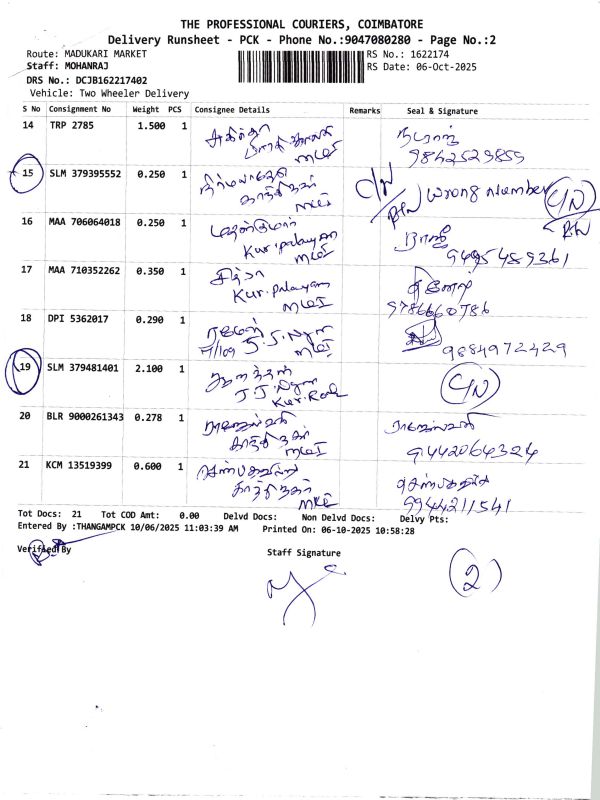 THE PROFESSIONAL COURIERS, COIMBATORE
Delivery Runsheet - PCK - Phone No.:9047080280 - Page No.:2
Route: MADUKARI MARKET
RS No.: 1622174
Staff: MOHANRAJ
RS Date: 06-Oct-2025
DRS No.: DCJB162217402
Vehicle: Two Wheeler Delivery
S No Consignment No Weight PCS Consignee Details Remarks Seal & Signature
14 TRP 2785 1.500 1
நடராஜ்
9842529855
15 SLM 379395552 0.250 1
காந்திநகர்
C/N wrong number C/N
16 MAA 706064018 0.250 1
Kur.palayam
ராஜி
9495489361
17 MAA 710352262 0.350 1 சித்ரா
Kur.Palayam
9786660786
18 DPI 5362017 0.290 1 ரமேஷ்
9884972429
19 SLM 379481401 2.100 1
J J Ngr
C/N
20 BLR 9000261343 0.278 1 ராஜேஸ்வரி ராஜேஸ்வரி
காந்திநகர்
9442064324
21 KCM 13519399 0.600 1
காந்திநகர்
9944211541
Tot Docs: 21 Tot COD Amt: 0.00 Delvd Docs: Non Delvd Docs: Delvy Pts:
Entered By :THANGAMPCK 10/06/2025 11:03:39 AM Printed On: 06-10-2025 10:58:28
Verified By
Staff Signature
2